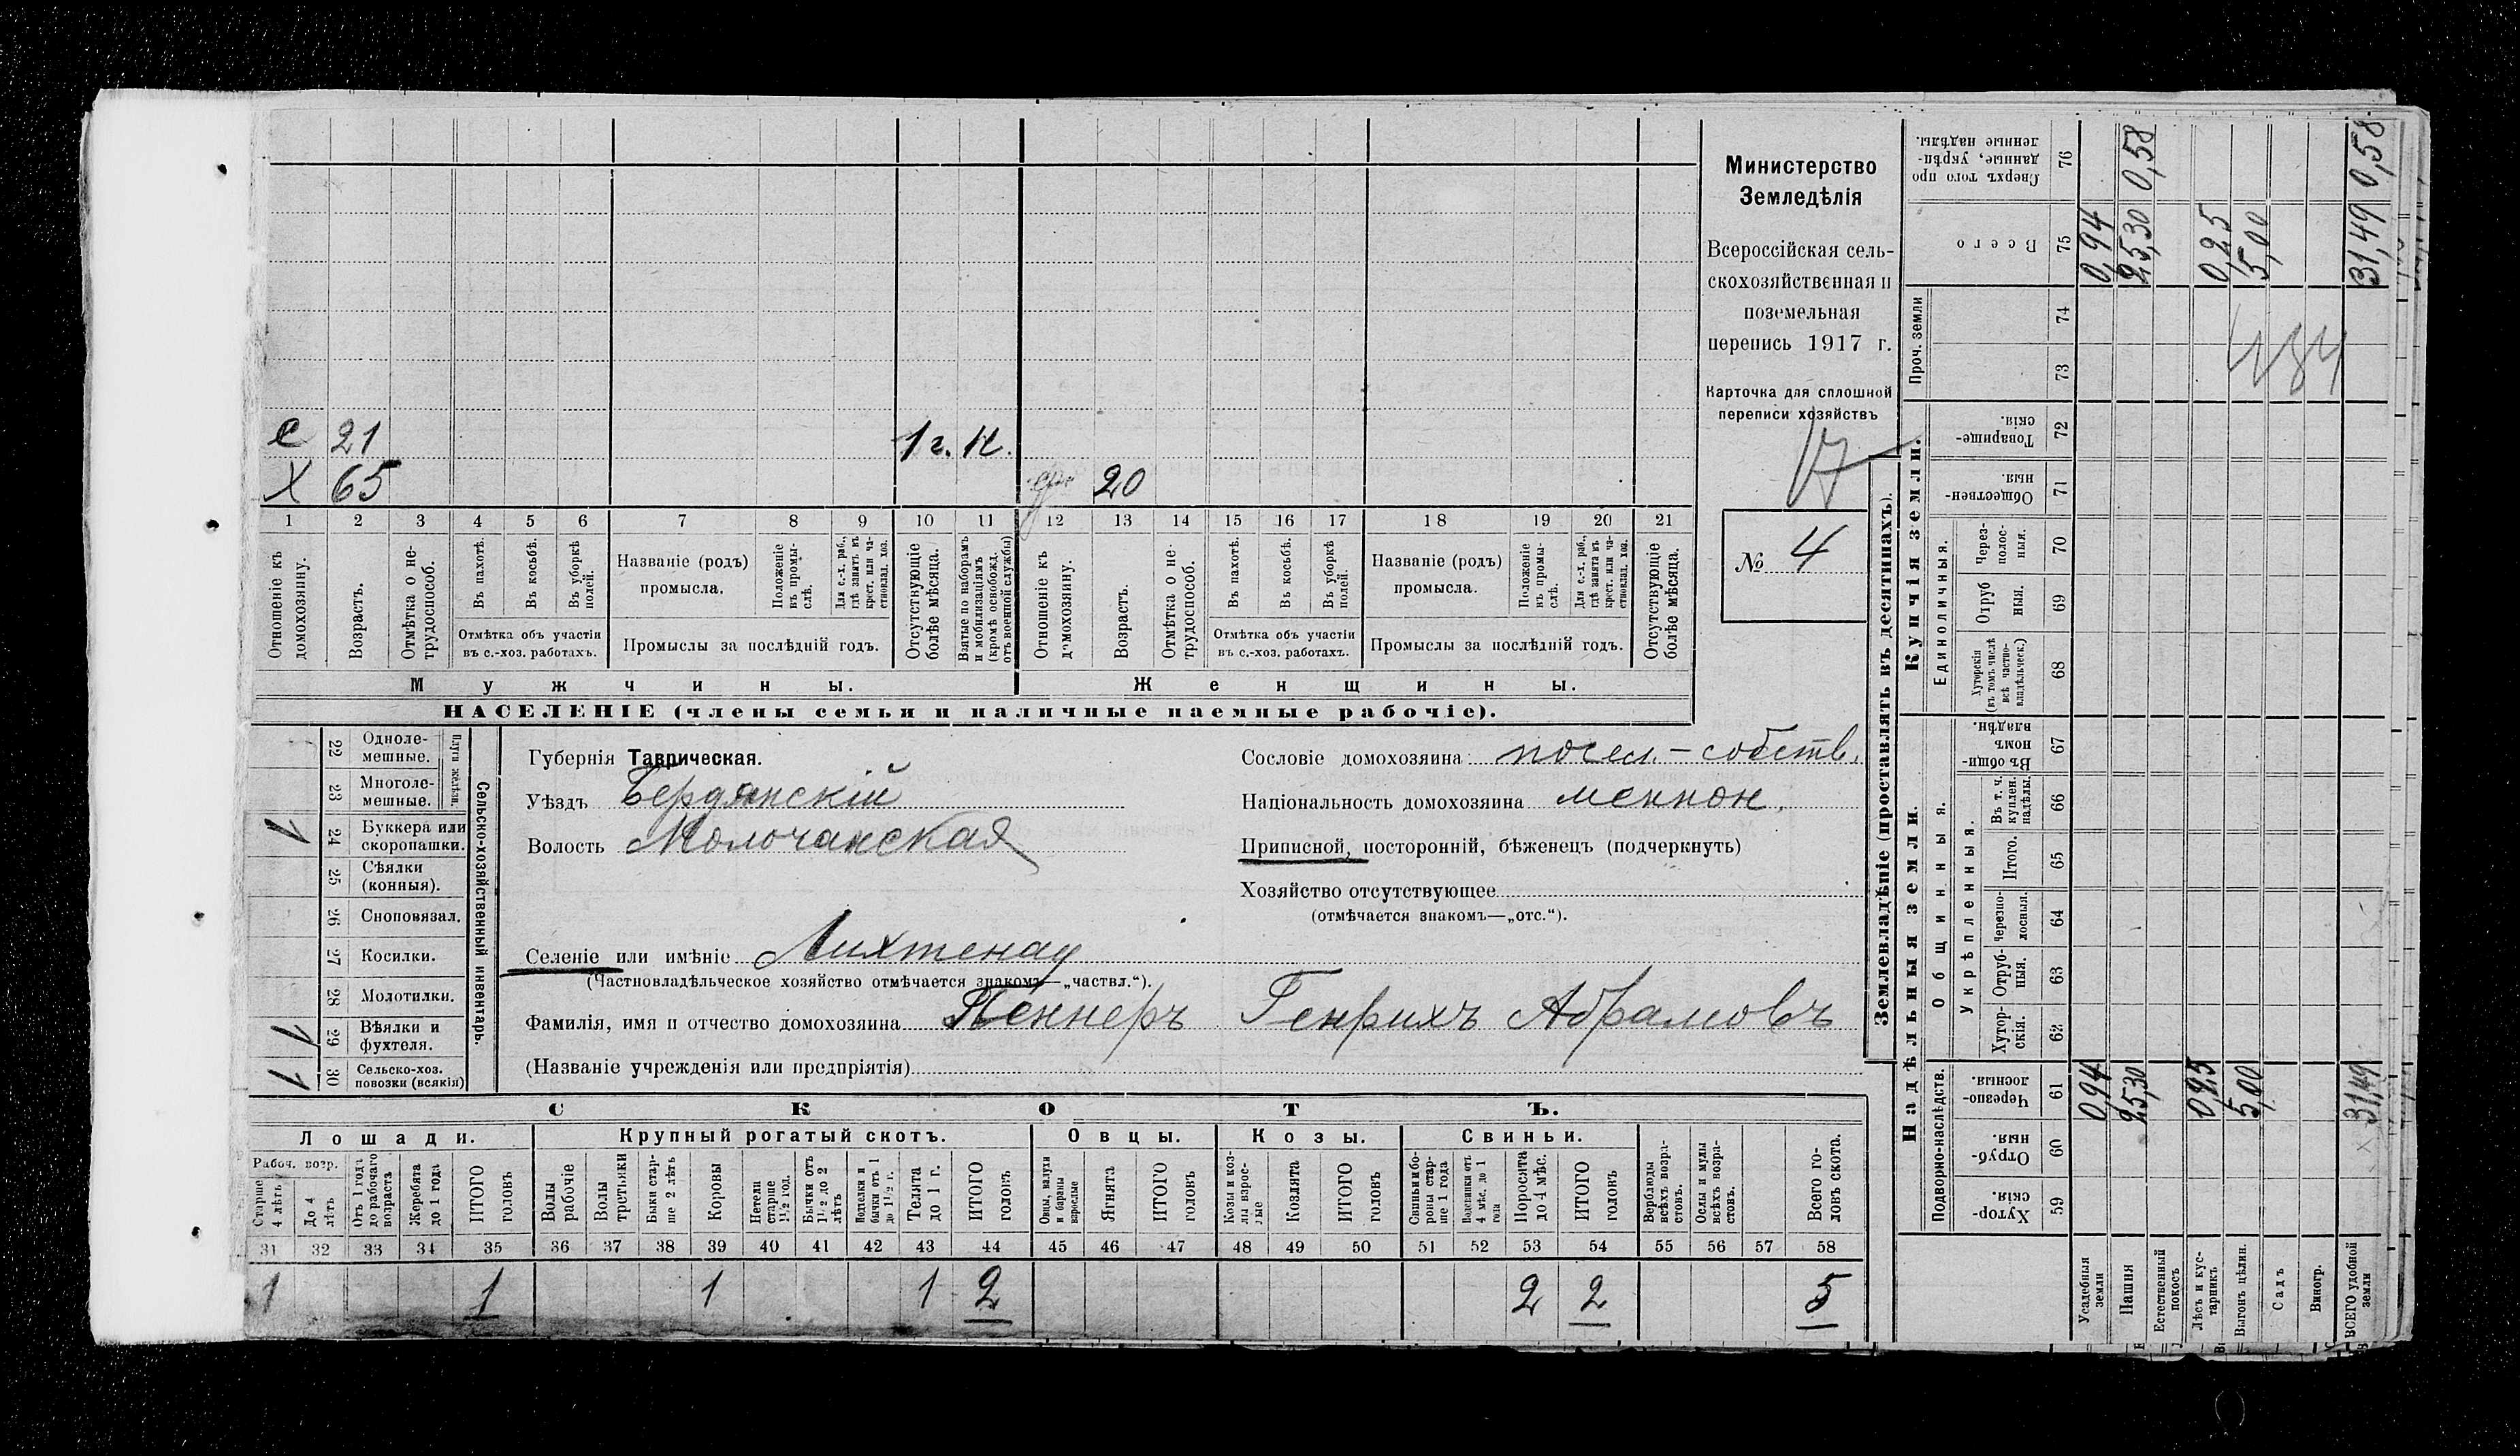 Министерство
Земледѣлія
Всероссійская сель-
скохозяйственная и
поземельная
перепись 1917 г.
Карточка для сплошной
переписи хозяйствъ
17
№ 4
с 21 1 г. н.
Х 65 20
1 2 3 4 5 6 7 8 9 10 11 12 13 14 15 16 17 18 19 20 21
Отношеніе къ домохозяину.
Возрастъ.
Отмѣтка о не-трудоспособ.
Въ пахотѣ.
Въ косьбѣ.
Въ уборкѣ полей.
Отмѣтка объ участіи
въ с.-хоз. работахъ.
Названіе (родъ)
промысла.
Положеніе въ промы-слѣ.
Для с.-х. раб., гдѣ занятъ въ крест. или ча-стновлад. хоз.
Промыслы за послѣдній годъ.
Отсутствующіе болѣе мѣсяца.
Взятые по наборамъ и мобилизаціямъ (кромѣ освобожд. отъ военной службы)
Отношеніе къ домохозяину.
Возрастъ.
Отмѣтка о не-трудоспособ.
Въ пахотѣ.
Въ косьбѣ.
Въ уборкѣ полей.
Отмѣтка объ участіи
въ с.-хоз. работахъ.
Названіе (родъ)
промысла.
Положеніе въ промы-слѣ.
Для с.-х. раб., гдѣ занята въ крест. или ча-стновлад. хоз.
Промыслы за послѣдній годъ.
Отсутствующіе болѣе мѣсяца.
Мужчины.
Женщины.
НАСЕЛЕНІЕ (члены семьи и наличные наемные рабочіе).
Сельско-хозяйственный инвентарь.
Плуги желѣзн.
22 Одноле-мешные.
23 Многоле-мешные.
1 24 Буккера или скоропашки.
25 Сѣялки (конныя).
26 Сноповязал.
27 Косилки.
28 Молотилки.
1 29 Вѣялки и фухтеля.
1 30 Сельско-хоз. повозки (всякія)
Губернія Таврическая.
Уѣздъ Бердянскій
Волость Молочанская
Селеніе или имѣніе Лихтенау
(Частновладѣльческое хозяйство отмѣчается знакомъ—„частвл.“).
Фамилія, имя и отчество домохозяина Пеннеръ Генрихъ Абрамовъ
(Названіе учрежденія или предпріятія)
Сословіе домохозяина посел.-собств.
Національность домохозяина меннон.
Приписной, посторонній, бѣженецъ (подчеркнуть)
Хозяйство отсутствующее
(отмѣчается знакомъ—„отс.“).
СКОТЪ.
Лошади. Крупный рогатый скотъ. Овцы. Козы. Свиньи.
Рабоч. возр.
Старше 4 лѣтъ
До 4 лѣтъ
Отъ 1 года до рабочаго возраста
Жеребята до 1 года
ИТОГО головъ
Волы рабочіе
Волы третьяки
Быки стар-ше 2 лѣтъ
Коровы
Нетели старше 1½ год.
Бычки отъ 1½ до 2 лѣтъ
Подтелки и бычки отъ 1 до 1½ г.
Телята до 1 г.
ИТОГО головъ
Овцы, валухи и бараны взрослые
Ягнята
ИТОГО головъ
Козы и коз-лы взрос-лые
Козлята
ИТОГО головъ
Свиньи и бо-ровы стар-ше 1 года
Подсвинки отъ 4 мѣс. до 1 года
Поросята до 4 мѣс.
ИТОГО головъ
Верблюды всѣхъ возра-стовъ.
Ослы и мулы всѣхъ возра-стовъ.
Всего го-ловъ скота.
31 32 33 34 35 36 37 38 39 40 41 42 43 44 45 46 47 48 49 50 51 52 53 54 55 56 57 58
1 1 1 1 2 2 2 5
Землевладѣніе (проставлять въ десятинахъ).
Надѣльныя земли.
Купчія земли.
Проч. земли
Подворно-наслѣдств.
Общинныя.
Укрѣпленныя.
Единоличныя.
Хутор-скія. 59
Отруб-ныя. 60
Черезпо-лосныя. 61
Хутор-скія. 62
Отруб-ныя. 63
Черезпо-лосныя. 64
Итого. 65
Въ т. ч. куплен. надѣлы. 66
Въ общи-номъ владѣн. 67
Хуторскія (въ томъ числѣ всѣ частно-владѣльческ.) 68
Отрубныя. 69
Через-полос-ныя. 70
Обществен-ныя. 71
Товарище-скія. 72
73
74
Всего 75
Сверхъ того про-данные, укрѣп-ленные надѣлы. 76
Усадебныя земли 0,94 0,94
Пашня 25,30 25,30 0,58
Естественный покосъ
Лѣсъ и кус-тарникъ 0,25 0,25
Выгонъ цѣлин. 5,00 5,00
Садъ
Виногр.
ВСЕГО удобной земли 31,49 31,49 0,58